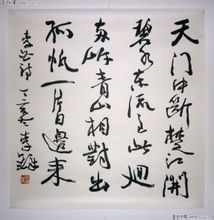 天门中断楚江開
碧水东流至此迴
两岸青山相對出
孤帆一片日邊来
李白诗 丁亥 李鐸